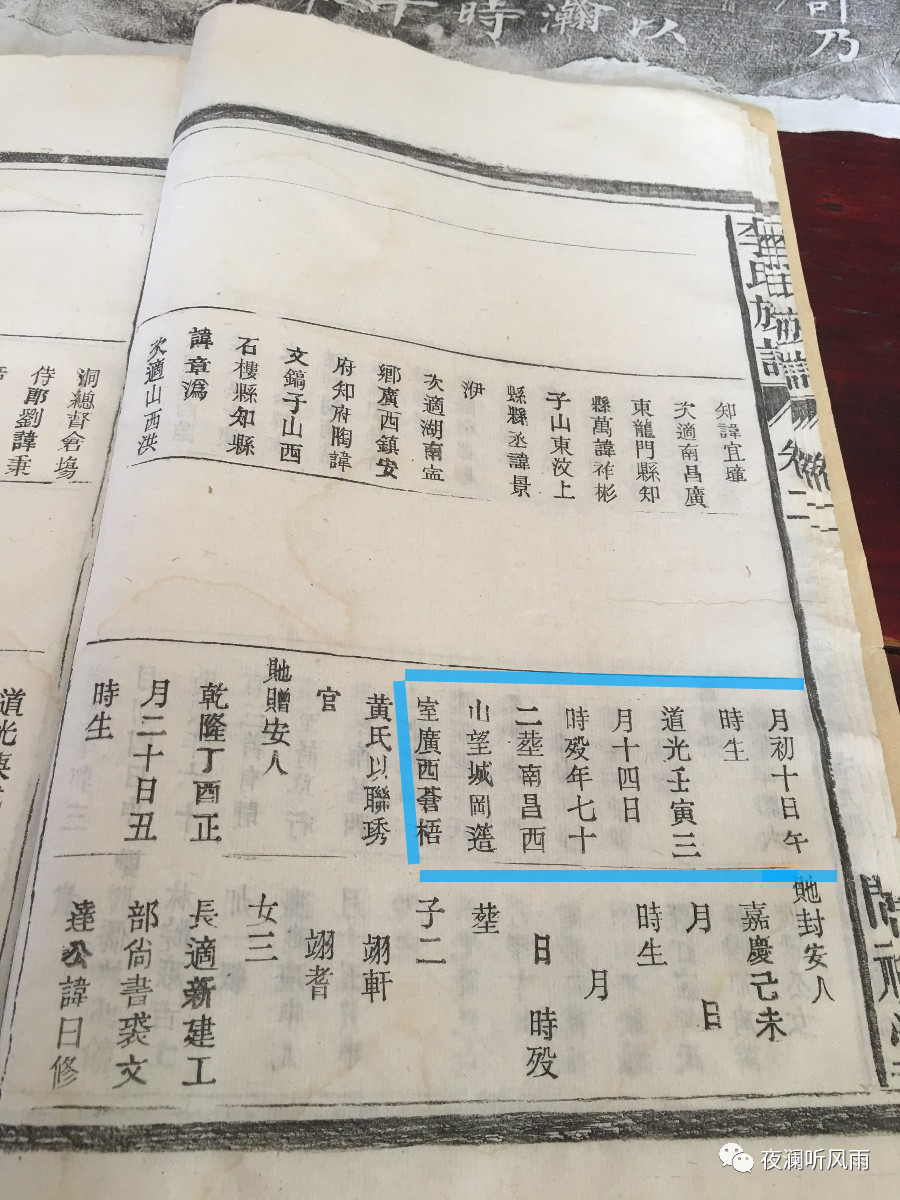 以
瀚
時
乃
李氏族譜
卷二
知諱宜瑾
次適南昌廣
東龍門縣知
縣萬諱祚彬
子山東汶上
縣縣丞諱景
洢
次適湖南寍
鄉廣西鎮安
府知府陶諱
文鎬子山西
石樓縣知縣
諱章溈
次適山西洪
洞總督倉場
侍郎劉諱秉
月初十日午
時生
道光壬寅三
月十四日
時歿年七十
二塟南昌西
山望城岡簉
室廣西蒼梧
黃氏以聯琇
官
貤贈安人
乾隆丁酉正
月二十日丑
時生
道光
貤封安人
嘉慶己未
月 日
時生
月
日 時歿
塟
子二
翊軒
翊耆
女三
長適新建工
部尙書裘文
達公諱日修
夜澜听风雨